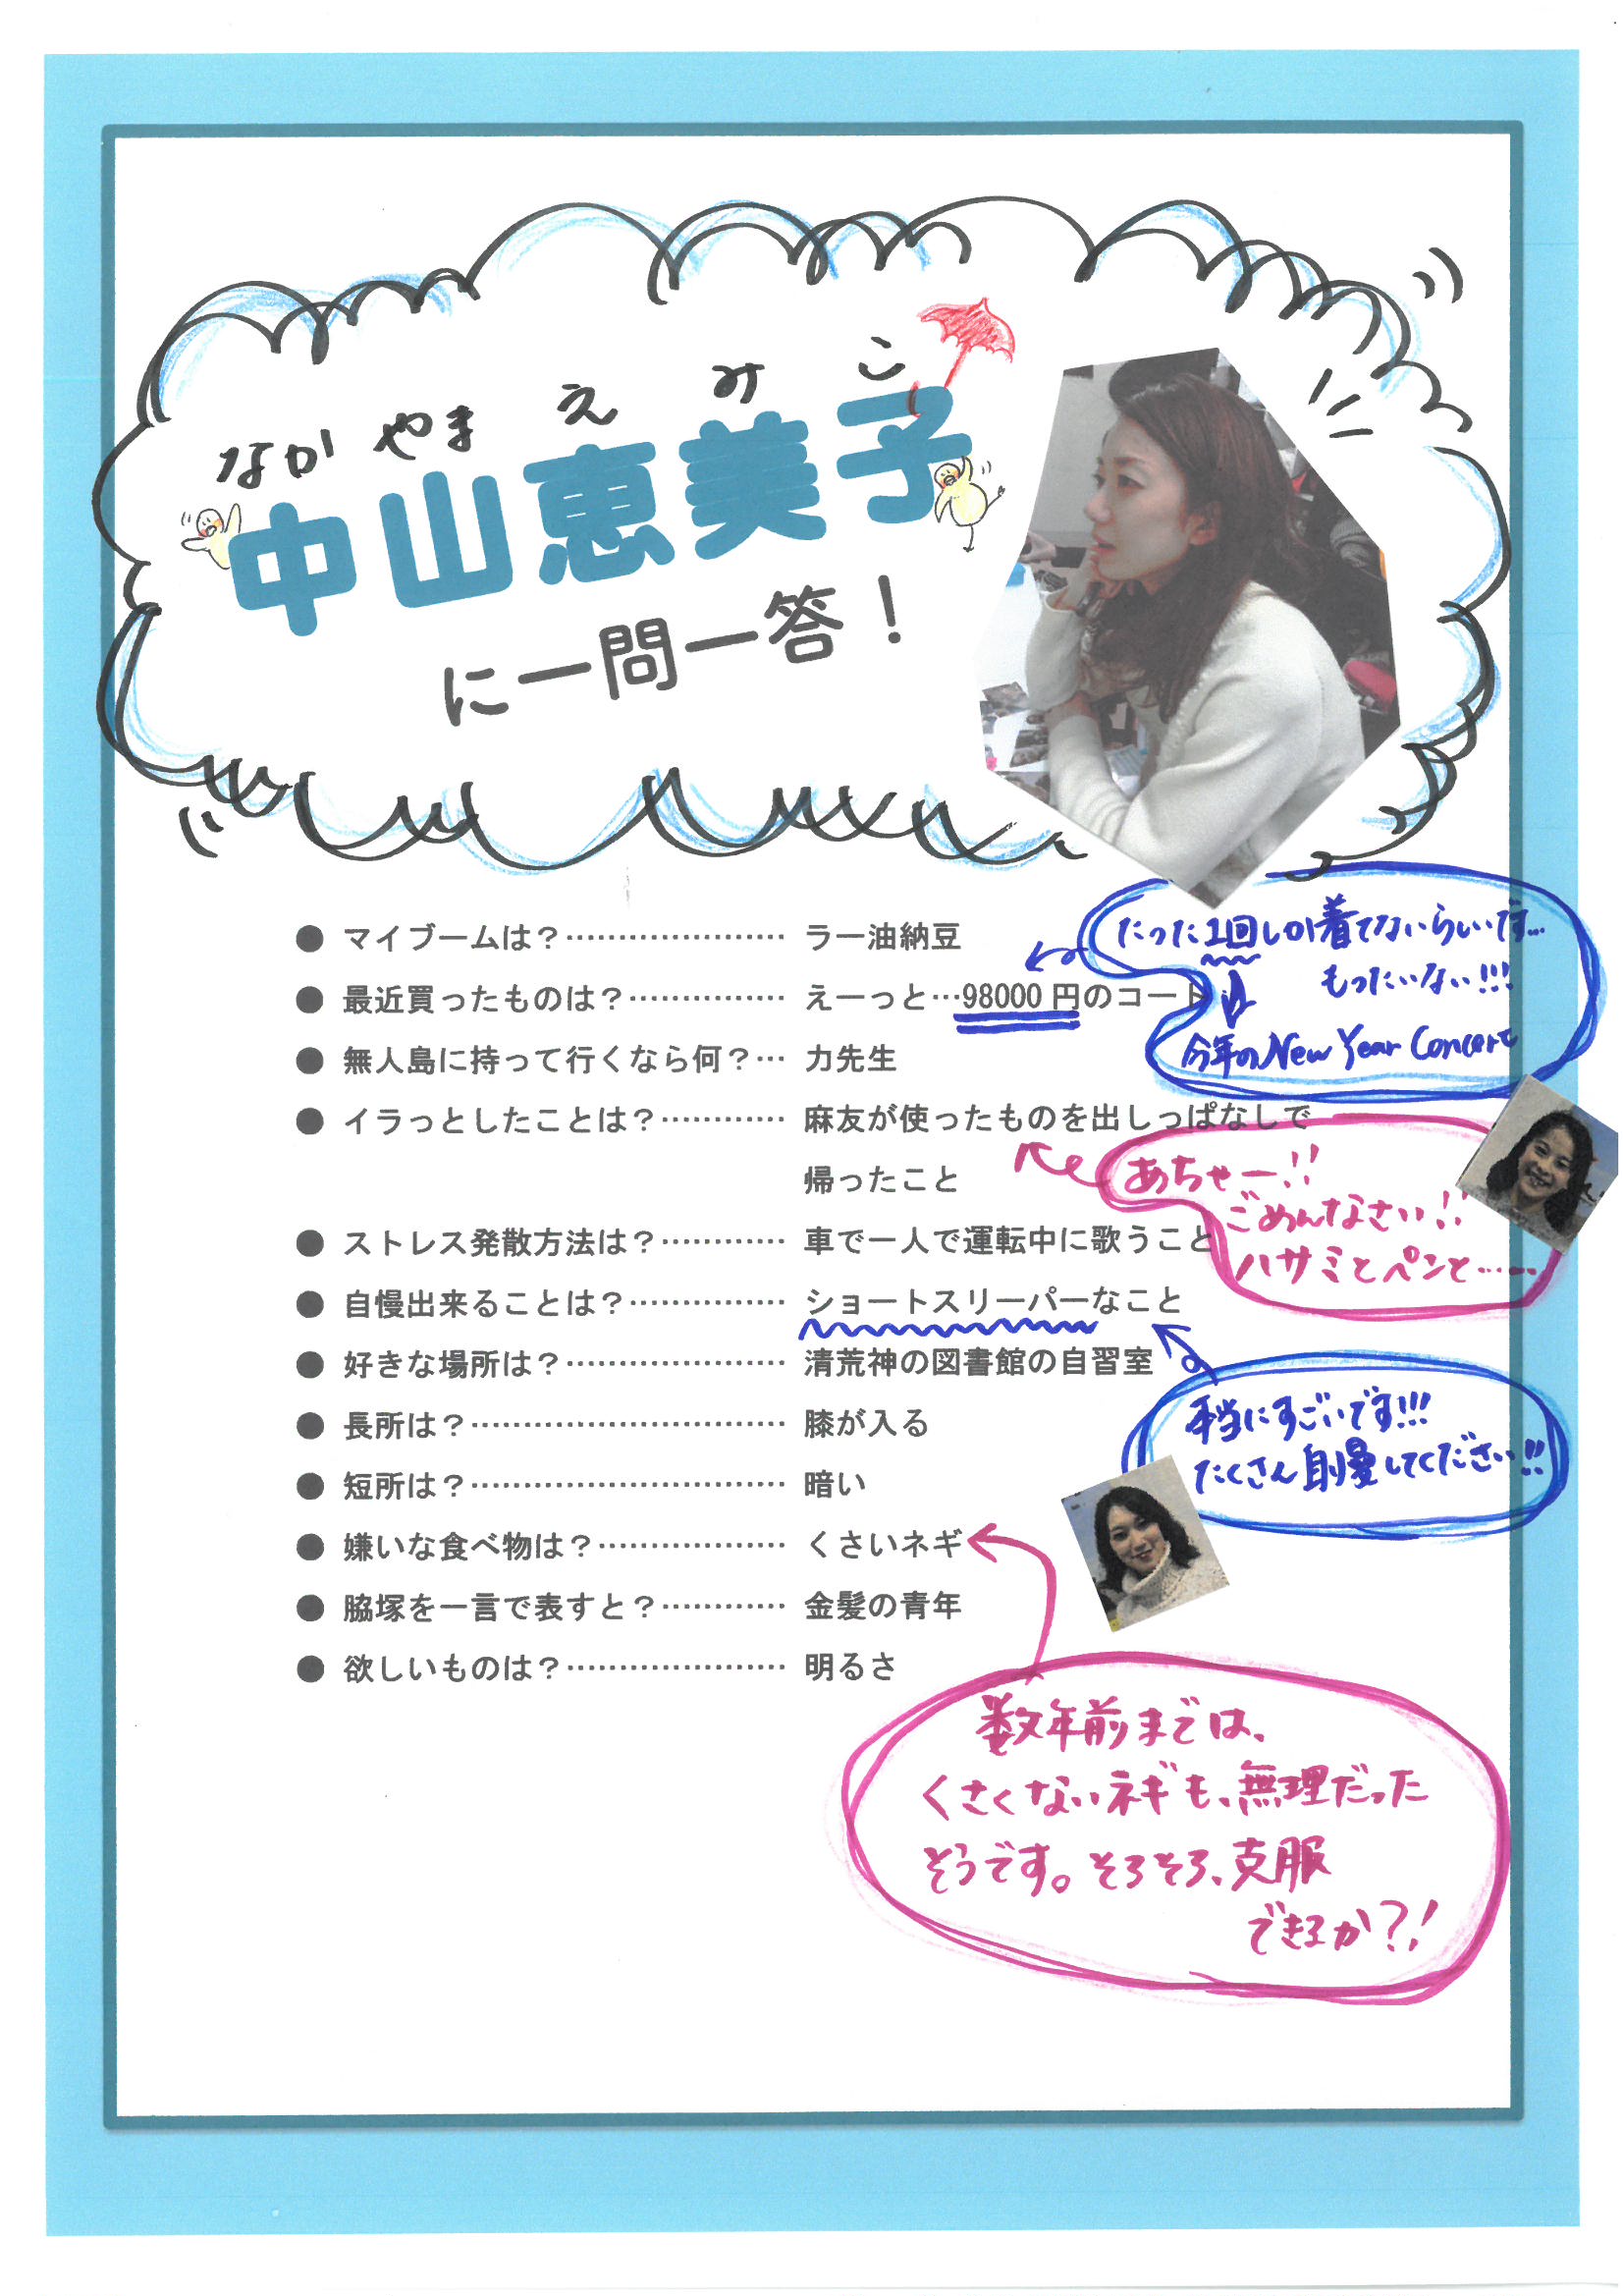 なか やま え み こ
中山恵美子
に一問一答！
● マイブームは？………………… ラー油納豆
● 最近買ったものは？…………… えーっと…98000 円のコート
● 無人島に持って行くなら何？… 力先生
● イラっとしたことは？………… 麻友が使ったものを出しっぱなしで
帰ったこと
● ストレス発散方法は？………… 車で一人で運転中に歌うこと
● 自慢出来ることは？…………… ショートスリーパーなこと
● 好きな場所は？………………… 清荒神の図書館の自習室
● 長所は？………………………… 膝が入る
● 短所は？………………………… 暗い
● 嫌いな食べ物は？……………… くさいネギ
● 脇塚を一言で表すと？………… 金髪の青年
● 欲しいものは？………………… 明るさ
たった1回しか着てないらしいです…
もったいない!!!
今年のNew Year Concert
あちゃー!!
ごめんなさい!!
ハサミとペンと……
本当にすごいです!!!
たくさん自慢してください!!
数年前までは、
くさくないネギも、無理だった
そうです。そろそろ、克服
できるか?!